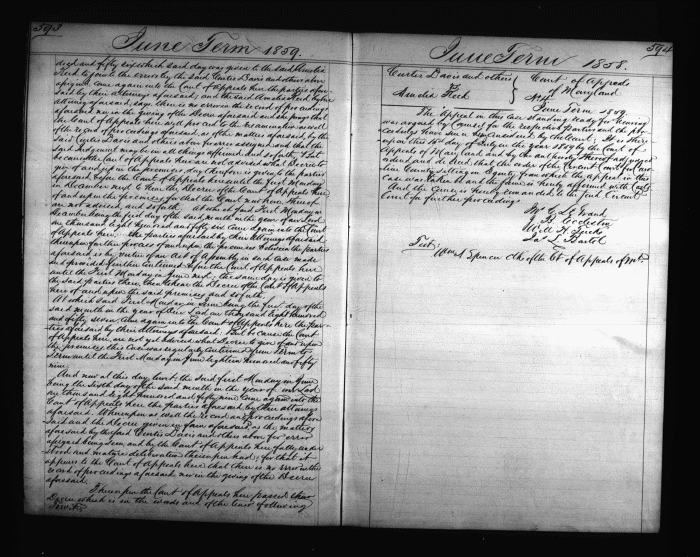 593
June Term 1859.
dred and fifty six which said day was given to the said Amelia
Heck to join to the errors by the said Curtis Davis and others above
assigned came again into the Court of Appeals here the parties afore-
said by their attornies aforesaid; and the said Amelia Heck by her
attorney aforesaid says there is no error in the record of proceedings
aforesaid nor in the giving of the Decree aforesaid and she prays that
the Court of Appeals here will proceed to the examination as well
of the record of proceedings aforesaid, as of the matters aforesaid by the
said Curtis Davis and others above for error assigned and that the
said Judgment may be in all things affirmed and so forth. But
because the Court of Appeals here are not advised what Decree to
give of and upon the premises day therefore is given to the parties
aforesaid before the Court of Appeals here until the first Monday
in December next to hear the Decree of the Court of Appeals here
of and upon the premises for that the Court now here thereof
are not advised and so forth. At which said first Monday in
December being the first day of the said month in the year of our Lord
one thousand eight hundred and fifty six came again into the Court
of Appeals here, the parties aforesaid by their attornies aforesaid
thereupon further process of and upon the premises between the parties
aforesaid is by virtue of an Act of Assembly in such case made
and provided further continued before the Court of Appeals here
until the First Monday in June next; the same day is given to
the said parties then there to hear the Decree of the Court of Appeals
here of and upon the said premises and so forth.
At which said First Monday in June being the first day of the
said month in the year of our Lord one thousand eight hundred
and fifty seven came again into the Court of Appeals here the par-
ties aforesaid by their attornies aforesaid. But because the Court
of Appeals here are not yet advised what Decree to give of and upon
the premises; this case was regularly continued from Term to
Term until the First Monday in June eighteen hundred and fifty
nine.
And now at this day to wit: the said first Monday in June
being the Sixth day of the said month in the year of our Lord
one thousand eight hundred and fifty nine came again into the
Court of Appeals here the parties aforesaid by their attornies
aforesaid. Whereupon as well the record and proceedings afore-
said and the Decree given in form aforesaid, as the matters
aforesaid by the said Curtis Davis and others above for error
assigned being seen and by the Court of Appeals here fully under-
stood and mature deliberation thereupon had; for that it
appears to the Court of Appeals here that there is no error in the
record of proceedings aforesaid nor in the giving of the Decree
aforesaid.
Thereupon the Court of Appeals here passed their
Decree which is in the words and of the tenor following
To wit:
594
June Term 1858.
Curtis Davis and others } Court of Appeals
vs of Maryland
Amelia Heck June Term 1859.
The Appeal in this case standing ready for hearing
was argued by Counsel for the respective parties and the pro-
ceedings have since been considered by the Court; It is there-
upon this 14th day of July in the year 1859 by the Court of
Appeals of Maryland, and by the authority thereof adjudged
ordered and decreed that the order of the Circuit Court for Caro-
line County sitting in Equity from which the appeal in this
case was taken be and the same is hereby affirmed with Costs
And the Cause is hereby remanded to the said Circuit
Court for further proceedings
Jno C. LeGrand
J. B. Eccleston
Will H. Tuck
Jas L. Bartol
Test:
Wm A Spencer Clk of the Ct of Appeals of Md.